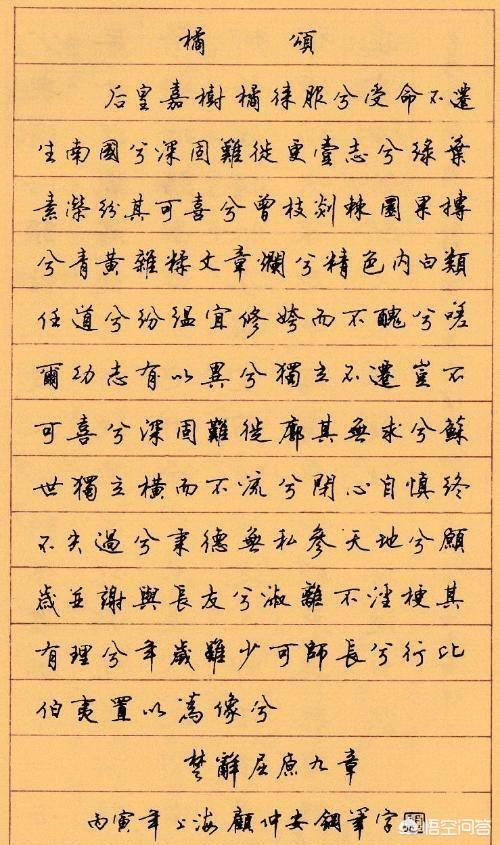 橘頌
后皇嘉樹橘徠服兮受命不遷
生南國兮深固難徙更壹志兮綠葉
素榮紛其可喜兮曾枝剡棘圜果摶
兮青黃雜糅文章爛兮精色內白類
任道兮紛緼宜修姱而不醜兮嗟
爾幼志有以異兮獨立不遷豈不
可喜兮深固難徙廓其無求兮蘇
世獨立橫而不流兮閉心自慎終
不失過兮秉德無私參天地兮願
歲並謝與長友兮淑離不淫梗其
有理兮年歲雖少可師長兮行比
伯夷置以為像兮
楚辭屈原九章
丙寅年上海顧仲安鋼筆字
悟空问答